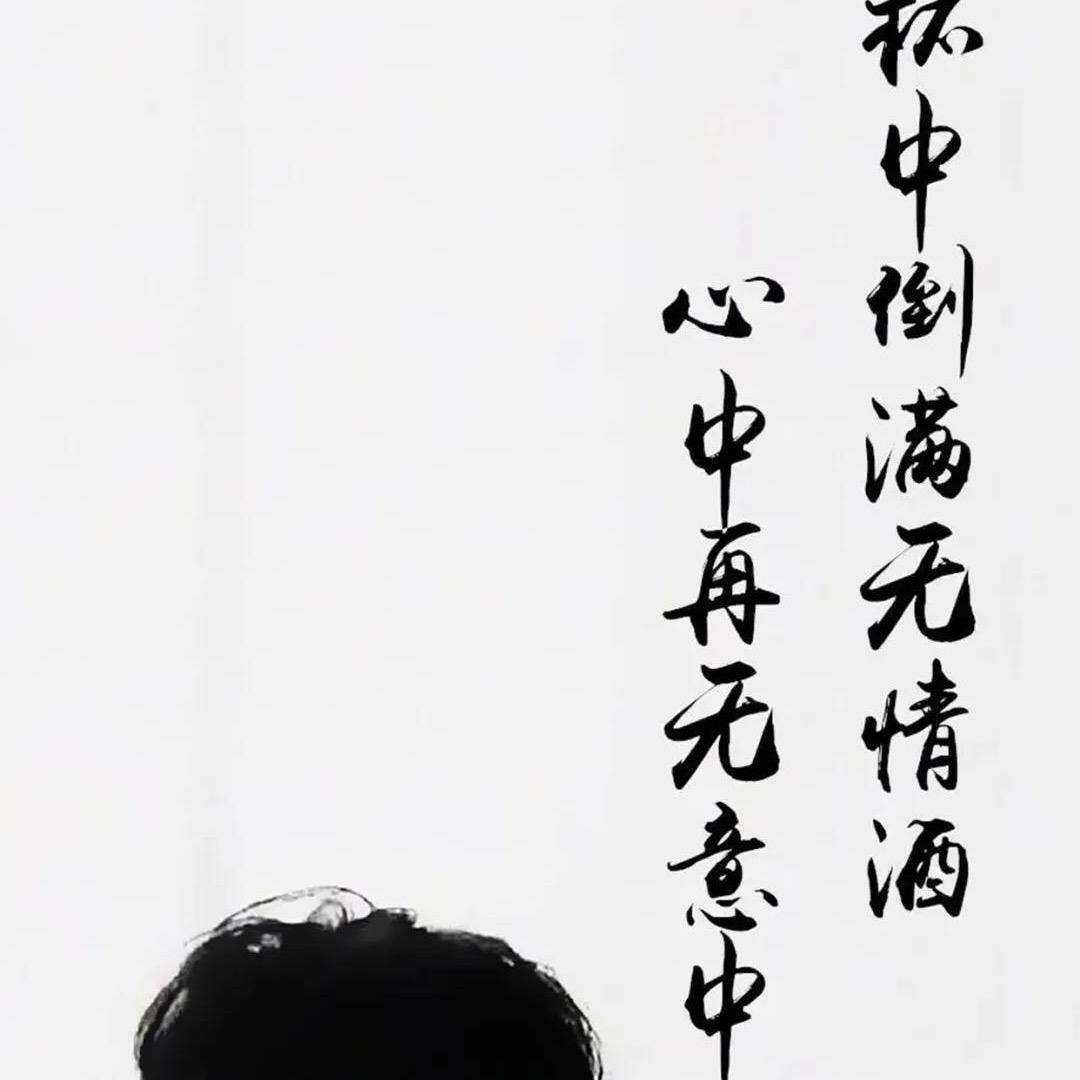 杯中倒满无情酒
心中再无意中